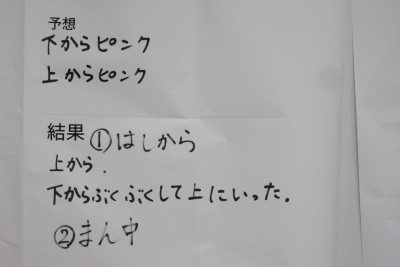 予想
下からピンク
上からピンク
結果 ①はしから
上から.
下からぶくぶくして上にいった。
②まん中